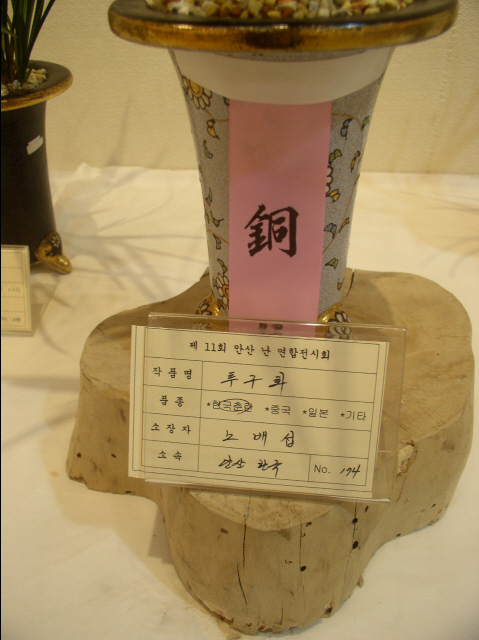 銅
제 11회 안산 난 연합전시회
작품명 투구화
품종 *한국춘란 *중국 *일본 *기타
소장자 노배섭
소속 안산 한국 No. 174